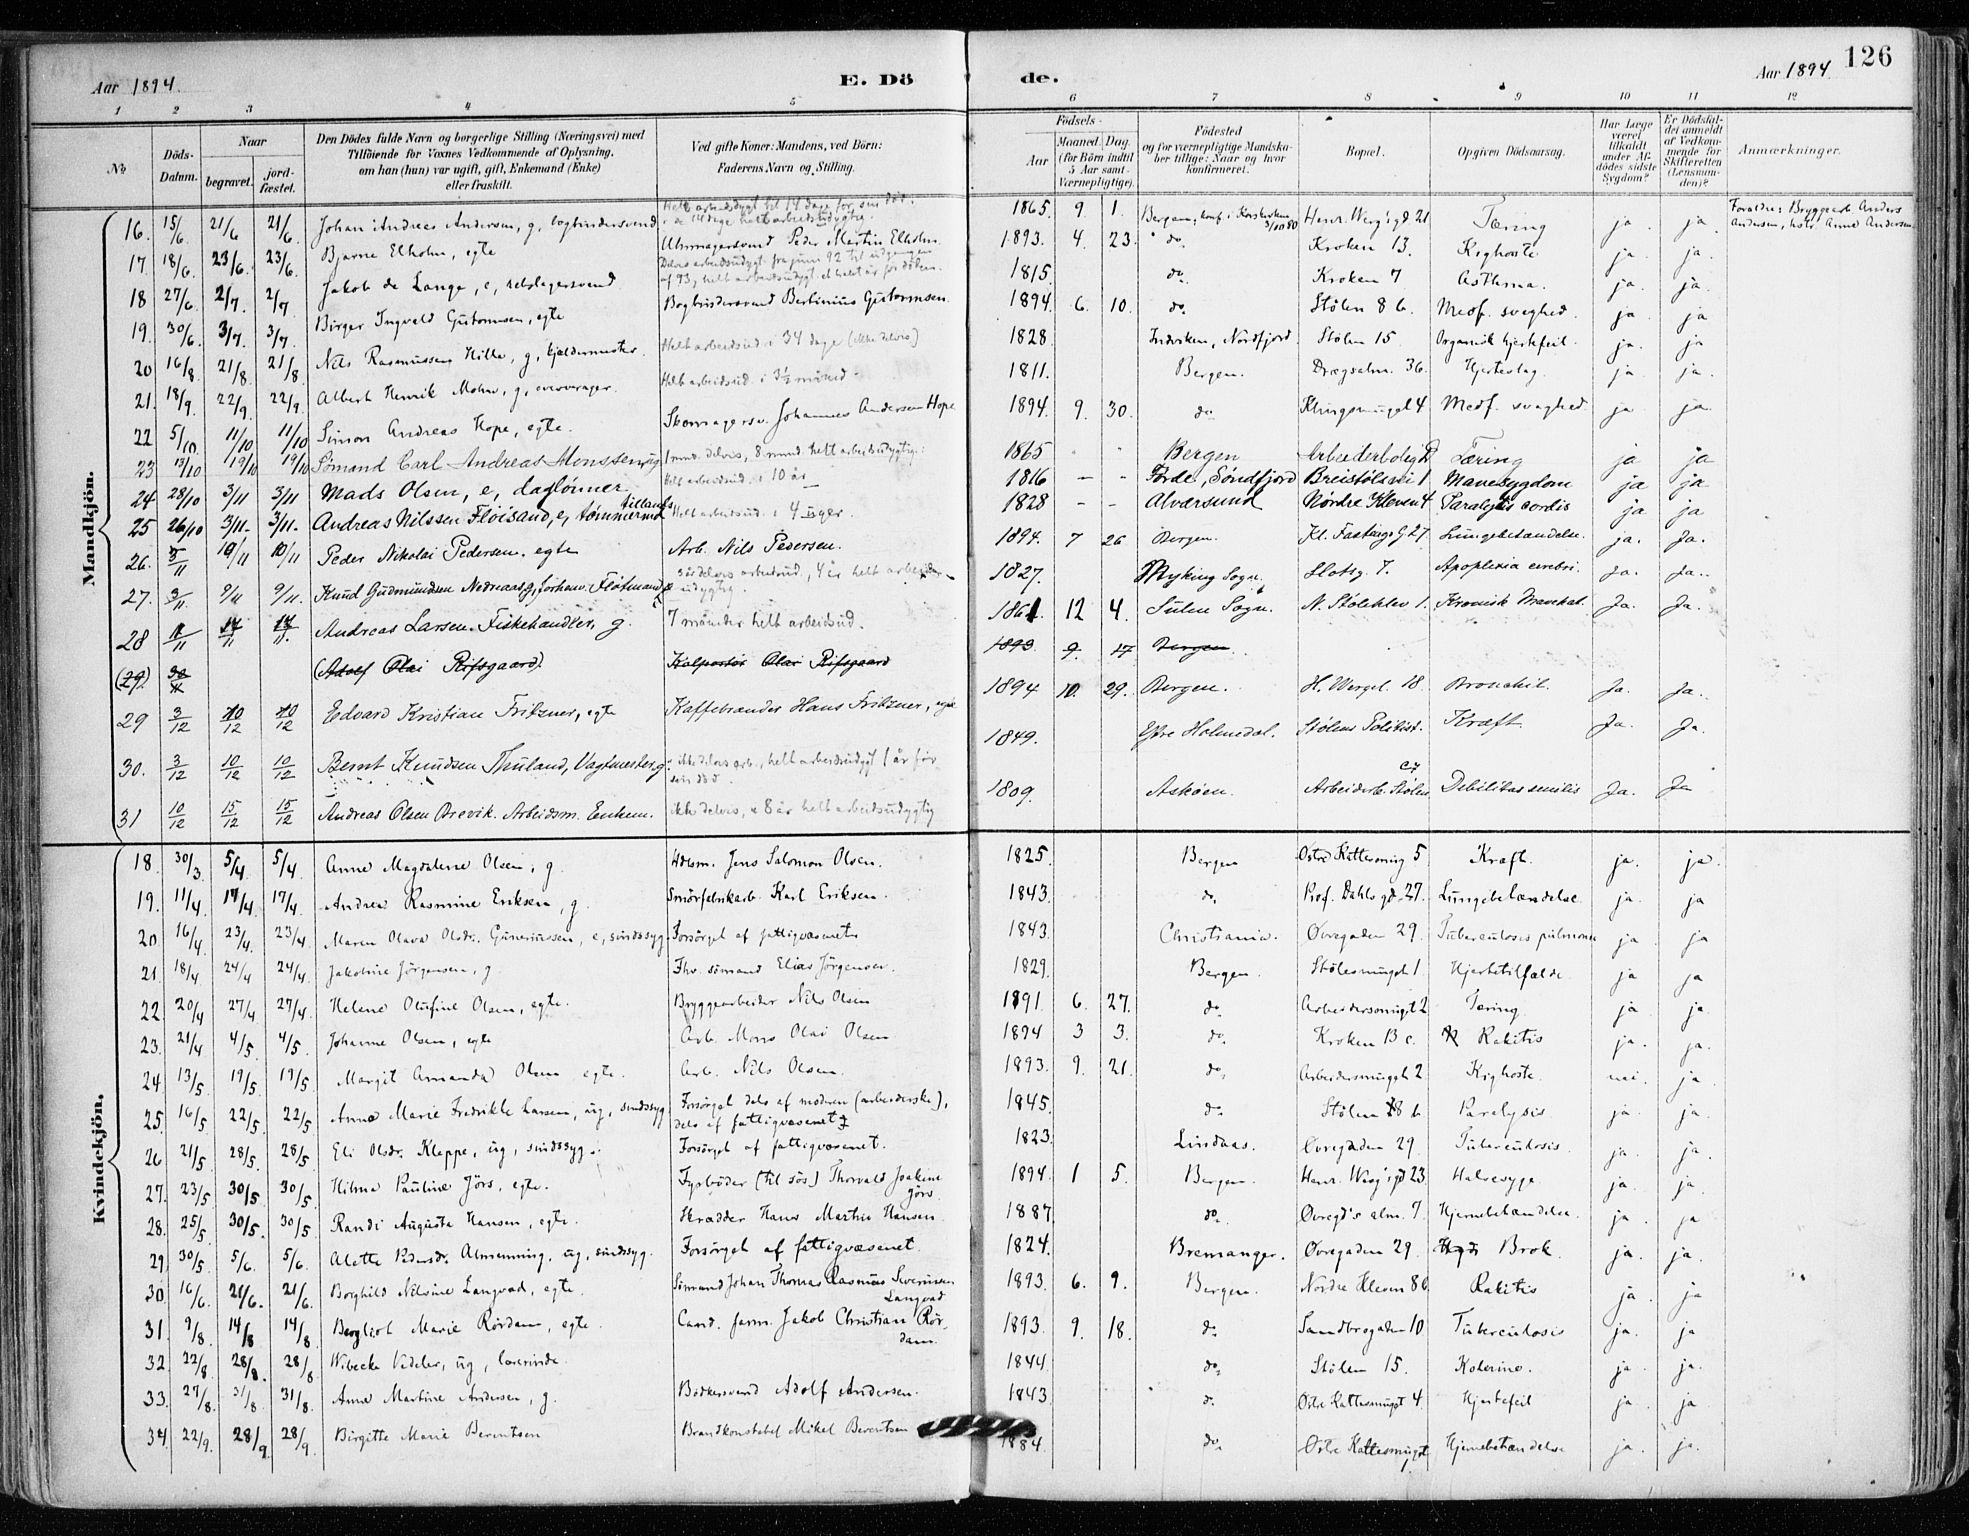 126
Aar 1894. E. Dö de. Aar 1894
1 2 3 4 5 6 7 8 9 10 11 12
No Döds-Datum. Naar begravet. jordfæstet. Den Dödes fulde Navn og borgerlige Stilling (Næringsvei) med Tilföiende for Voxnes Vedkommende af Oplysning, om han (hun) var ugift, gift, Enkemand (Enke) eller fraskilt. Ved gifte Koner: Mandens, ved Börn: Faderens Navn og Stilling. Födsels- Aar Maaned. Dag. (for Börn indtil 5 Aar samt Værnepligtige). Födested og for værnepligtige Mandskaber tillige: Naar og hvor konfirmeret. Bopæl. Opgiven Dödsaarsag. Har Læge været tilkaldt under Afdödes sidste Sygdom? Er Dödsfaldet anmeldt af Vedkommende for Skifteretten (Lensmanden)? Anmærkninger.
Mandkjön.
16. 15/6. 21/6 21/6. Johan Andreas Andersen, g, bogbindersvend Helt arbeidsudygt. til 14 dage før sin død. 1865. 9. 1. Bergen, konf. i Korskirken Henr. Werg's gd 21 Tæring ja. ja. Foræltre: Bryggearb. Anders Andersen, hstr. Anne Andersen
17. 18/6. 23/6. 23/6. Bjarne Elholm, egte Uhrmagersvend Peder Martin Elholm. 1893. 4. 23. do. Kroken 13. Kighoste ja. ja.
18 27/6. 2/7. 2/7 Jakob de Lange, e, rebslagersvend Delvis arbeidsudygt. fra juni 92 til udgangen af 93, helt arbeidsudygt. et halvt år før döden. 1815 do. Kroken 7 Asthma. ja. ja.
19. 30/6. 3/7. 3/7. Birger Ingvald Gustormsen, egte Bogbindersvend Bertinius Gustormsen. 1894 6. 10. do. Stölen 8 b. Medf. svaghed. ja. ja
20 16/8. 21/8. 21/8. Nils Rasmussen Hille, g, kjældermester. Helt arbeidsud. i 34 dage (ikke delvis) 1828. Indviken, Nordfjord Stölen 15. Organisk hjertefeil ja. ja
21. 18/9. 22/9. 22/9. Albert Henrik Mohn, g, Helt arbeidsud. i 3½ måned 1811. Bergen. Drægsalm. 36. Hjerteslag. ja. ja.
22 5/10. 11/10 11/10 Simon Andreas Hope, egte. Skomagersv. Johannes Andersen Hope 1894. 9. 30. do Klingesmuget 4 Medf. svaghed ja ja
23 13/10 19/10 19/10 Sömand Carl Andreas Monssen, ug 1 mnd. delvis, 8 mnd. helt arbeidsudygtig. 1865 Bergen Arbeiderbolig Tæring ja ja
24 28/10 3/11 3/11 Mads Olsen, e, daglönner Helt arbeidsud. i 10 år 1816 – – Förde, Söndfjord Breistölsvei 1 Mavesygdom ja ja
25 26/10 3/11. 3/11. Andreas Nilssen Flöisand, e, tömmermand tillands Helt arbeidsud. i 4 uger. 1828 – – Alværsund Nordre Kleven 4 Paralysis cordis ja ja
26. 5/11 10/11 10/11 Peder Nikolai Pedersen. egte Arb. Nils Pedersen. 1894. 7 26 Bergen. Kl. Fastings G 27 Lungebetændelse. ja. Ja.
27. 3/11. 9/11 9/11. Knud Gudmundsen Nedreaas, g, forhenv. Flötmand delvis arbeidsud., 4 år helt arbeidsudygtig. 1827. Myking Sogn. Slotsg. 7. Apoplexia cerebri. Ja. Ja.
28 11/11 17/11 17/11. Andreas Larsen. Fiskehandler, g. 7 måneder helt arbeidsud. 1861. 12 4. Sulen Sogn. N. Stöleklev 1. Kronisk Mavekat. Ja. Ja.
(29.) 30/11 (Adolf Olai Rifsgaard). Kolportör Olai Rifsgaard 1893. 9. 17 Bergen.
29 3/12 10/12 10/12 Edvard Kristian Fritzner, egte Kaffebrænder Hans Fritzner, egte 1894 10. 29. Bergen. H. Wergel. 18. Bronchit. Ja. Ja.
30. 3/12 10/12 10/12 Bernt Knudsen Thuland, Vagtmester, g. ikke delvis arb., helt arbeidsudygt 1 år før sin død. 1849. Ytre Holmedal. Stölens Politist. Kræft Ja. Ja.
31 10/12 15/12 15/12 Andreas Olsen Brevik. Arbeidsm. Enkem. ikke delvis, 8 år helt arbeidsudygtig 1809. Askøen. Arbeiderb. Stölen Debilitas senilis Ja. Ja
Kvindekjön.
18. 30/3. 5/4. 5/4. Anne Magdalene Olsen, g. Hdlsm. Jens Salomon Olsen. 1825. Bergen Østre Kattesmug 5 Kræft. ja. ja.
19. 11/4. 17/4. 17/4. Andrea Rasmine Eriksen, g. Smörfabrikarb. Karl Eriksen. 1843. do. Prof. Dahls gd. 27. Lungebetændelse ja. ja
20. 16/4. 23/4. 23/4. Maren Olava Olsdr. Gunerussen, e, sindssyg. Forsörget af fattigvæsenet. 1843. Christiania. Øvregaden 29. Tuberculosis pulmonum ja. ja
21. 18/4 24/4 24/4. Jakobine Jörgensen, g. Fhv. sömand Elias Jörgensen. 1829. Bergen. Stölesmuget 1 Hjertetilfælde. ja ja
22. 20/4 27/4 27/4. Helene Olufine Olsen, egte. Bryggearbeider Nils Olsen 1891 6. 27. do. Arbeidersmuget 2 Tæring. ja ja.
23. 21/4 4/5 4/5. Johanne Olsen, egte Arb. Mons Olai Olsen 1894 3 3. do. Kroken 13 c. Rakitis ja. ja.
24. 13/5. 19/5. 19/5 Margit Amanda Olsen egte. Arb. Nils Olsen. 1893. 9. 21. do. Arbeidersmuget 2. Kighoste. nei. ja.
25. 16/5 22/5. 22/5 Anna Marie Fredrikke Larsen, ug, sindssyg Forsörget dels af moderen (arbeiderske), dels af fattigvæsenet. 1845. do. Stölen 8 b. Paralysis ja. ja.
26 21/5 28/5. 28/5 Eli Olsdr. Kleppe, ug, sindssyg. Forsörget af fattigvæsenet. 1823. Lindaas. Øvregaden 29. Tuberculosis. ja. ja.
27. 23/5 30/5 30/5 Hilma Pauline Jörs, egte. Fyrböder (til sös) Thorvald Joakim Jörs. 1894 1 5. Bergen. Henr. Werg's gd 23. Halssyge ja. ja.
28. 25/5 30/5. 30/5 Randi Augusta Hansen, egte. Skrædder Hans Martin Hansen. 1887. do. Øvregd's alm. 7. Hjernebetændelse. ja. ja
29. 30/5 5/6. 5/6. Alette Pedersdr. Almenning, ug, sindssyg. Forsörget af fattigvæsenet. 1824. Bremanger. Øvregaden 29. Brok. ja. ja.
30. 16/6. 21/6. 21/6. Borghild Nilsine Langvad, egte. Sömand Johan Thomas Rasmus Severinsen Langvad 1893. 6. 9. Bergen. Nordre Kleven 8 b. Rakitis ja. ja
31. 9/8. 14/8 14/8 Bergliot Marie Rördam, egte. Cand. farm. Jakob Christian Rördam. 1893. 9. 18. do. Sandbrogaden 10 Tuberculosis ja. ja
32 22/8 28/8. 28/8 Wibecke Vedeler, ug, lærerinde. 1844. do. Stölen 15. Kolerine. ja. ja.
33. 27/8. 31/8. 31/8. Anna Martine Andersen, g. Bödkersvend Adolf Andersen. 1843 do. Østre Kattesmuget 4. Hjertefeil ja. ja
34. 22/9. 28/9. 28/9. Birgitte Marie Berentsen Brandkonstabel Mikel Berentsen 1884. do. Østre Kattesmuget Hjernebetændelse ja. ja.